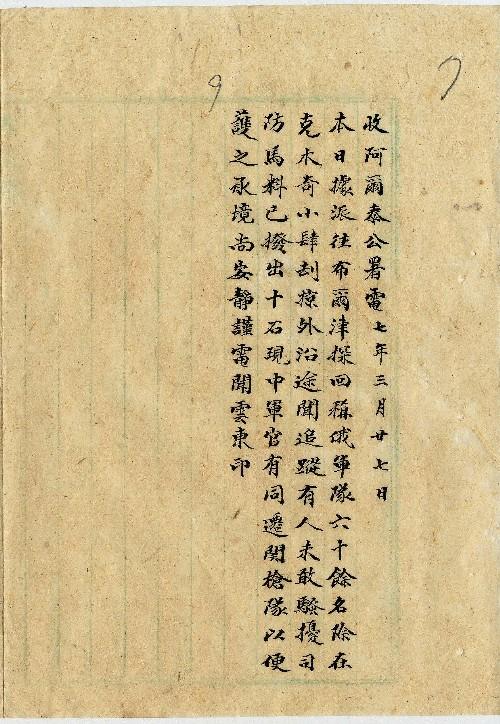 收阿爾泰公署電七年三月廿七日
本日據派往布爾津探回稱俄軍隊六十餘名除在
克木奇小肆刮掠外沿途聞追蹤有人未敢騷擾司
防馬料已撥出十石現中軍官有同遷開槍隊以便
護之承境尚安靜謹電聞雲東印